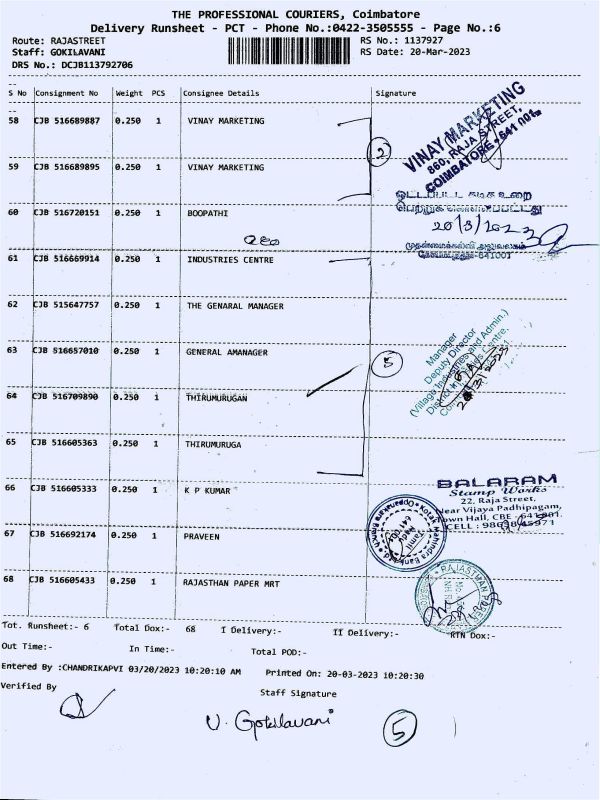 THE PROFESSIONAL COURIERS, Coimbatore
Delivery Runsheet - PCT - Phone No.:0422-3505555 - Page No.:6
Route: RAJASTREET RS No.: 1137927
Staff: GOKILAVANI RS Date: 20-Mar-2023
DRS No.: DCJB113792706
S No Consignment No Weight PCS Consignee Details Signature
58 CJB 516689887 0.250 1 VINAY MARKETING
VINAY MARKETING
860, RAJA STREET,
COIMBATORE - 641 001.
2
59 CJB 516689895 0.250 1 VINAY MARKETING
60 CJB 516720151 0.250 1 BOOPATHI
ஒட்டப்பட்ட கடித உறை
பெற்றுக்
20/3/2023
641001
61 CJB 516669914 0.250 1 INDUSTRIES CENTRE
62 CJB 515647757 0.250 1 THE GENARAL MANAGER
63 CJB 516657010 0.250 1 GENERAL AMANAGER
5
Manager
Deputy Director
(Village Industries and Admin.)
District Industries Centre,
64 CJB 516709890 0.250 1 THIRUMURUGAN
65 CJB 516605363 0.250 1 THIRUMURUGA
66 CJB 516605333 0.250 1 K P KUMAR
BALARAM
Stamp Works
22. Raja Street,
Near Vijaya Padhipagam,
Town Hall, CBE - 641001.
67 CJB 516692174 0.250 1 PRAVEEN
Kotak Mahindra Bank Ltd
68 CJB 516605433 0.250 1 RAJASTHAN PAPER MRT
Tot. Runsheet:- 6 Total Dox:- 68 I Delivery:- II Delivery:- RTN Dox:-
Out Time:- In Time:- Total POD:-
Entered By :CHANDRIKAPVI 03/20/2023 10:20:10 AM Printed On: 20-03-2023 10:20:30
Verified By Staff Signature
V. Gokilavani
5